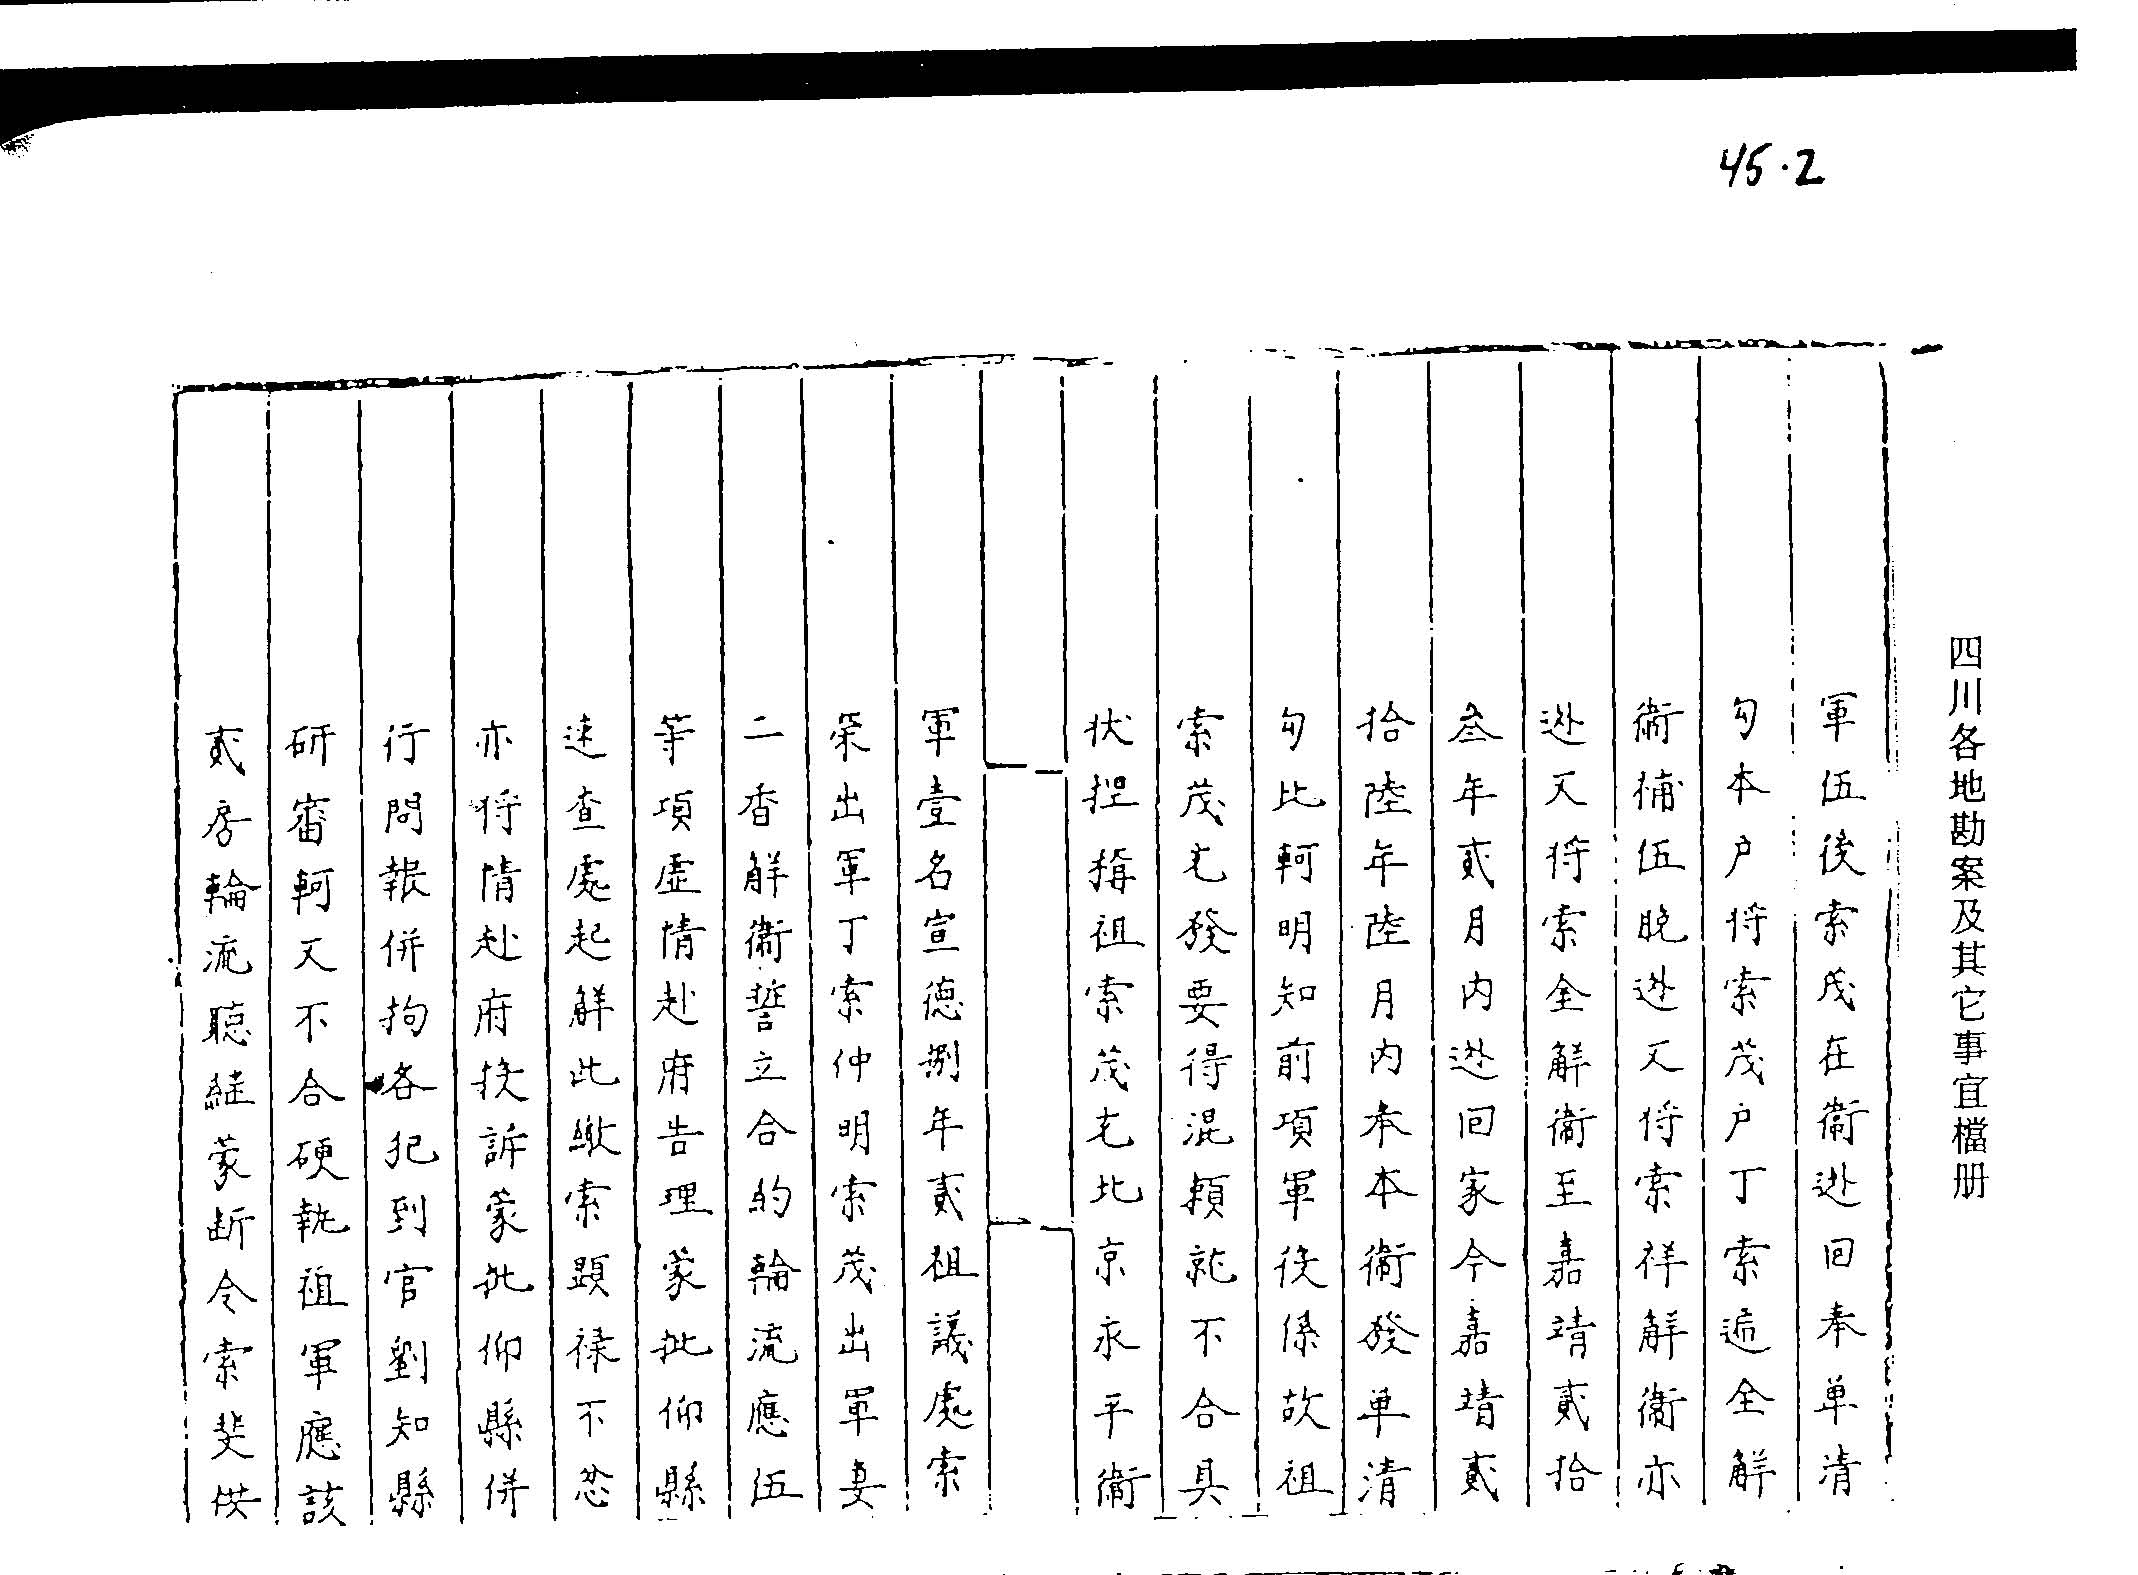 45·2
四川各地勘案及其它事宜檔册
軍伍後索茂在衛逃回奉单清
勾本户将索茂户丁索遄全解
衛補伍晚逃又将索祥解衛亦
逃又将索全解衛至嘉靖貳拾
叁年貳月内逃回家今嘉靖貳
拾陸年陸月内奉本衛發单清
勾比軻明知前項軍役係故祖
索茂充發要得混賴就不合具
状捏稱祖索茂充北京永平衛
軍壹名宣德捌年貳祖議處索
荣出軍丁索仲明索茂出軍妻
二香解衛誓立合約輪流應伍
等項虚情赴府告理蒙批仰縣
速查處起解此繳索顕禄不忿
亦将情赴府投訴蒙批仰縣併
行問報併拘各犯到官劉知縣
研審軻又不合硬執祖軍應該
貳房輪流聽継蒙断令索斐供